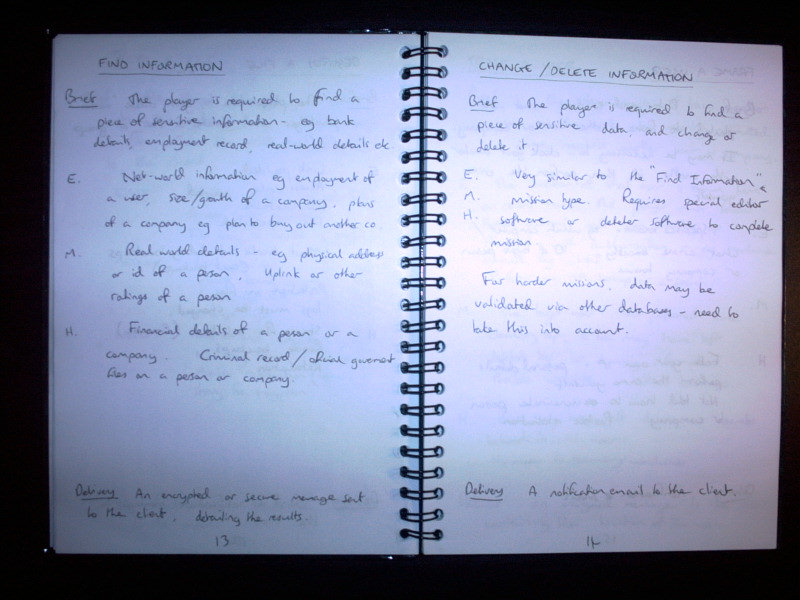 FIND INFORMATION
Brief The player is required to find a
piece of sensitive information - eg bank
details, employment record, real-world details etc.
E. Net-world information eg employment of
a user, size/growth of a company, plans
of a company eg plan to buy out another co.
M. Real world details - eg physical address
or id of a person. Uplink or other
ratings of a person
H. Financial details of a person or a
company. Criminal record / official government
files on a person or company.
Delivery An encrypted or secure message sent
to the client, detailing the results.
13
CHANGE / DELETE INFORMATION
Brief The player is required to find a
piece of sensitive data, and change or
delete it
E. Very similar to the "Find Information"
M. mission type. Requires special editor
H. software or deleter software to complete
mission
For harder missions, data may be
validated via other databases - need to
take this into account.
Delivery A notification email to the client.
14